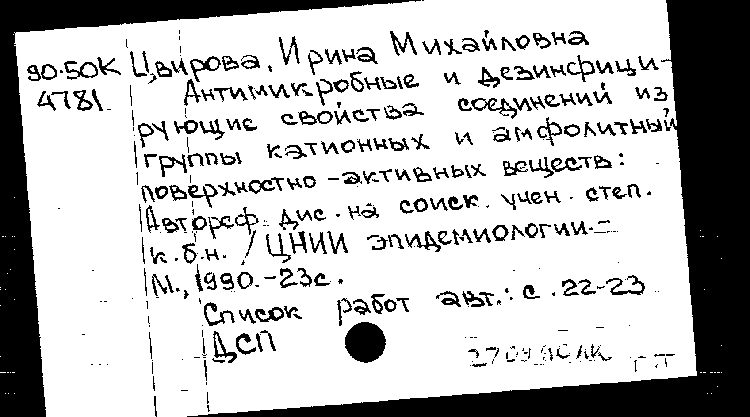 90-50К Цвирова, Ирина Михайловна
4781. Антимикробные и дезинфици-
рующие свойства соединений из
группы катионных и амфолитный
поверхностно-активных веществ:
Автореф. дис. на соиск. учен. степ.
к.б.н. / ЦНИИ эпидемиологии.-
М., 1990.-23с.
Список работ авт.: с. 22-23
ДСП